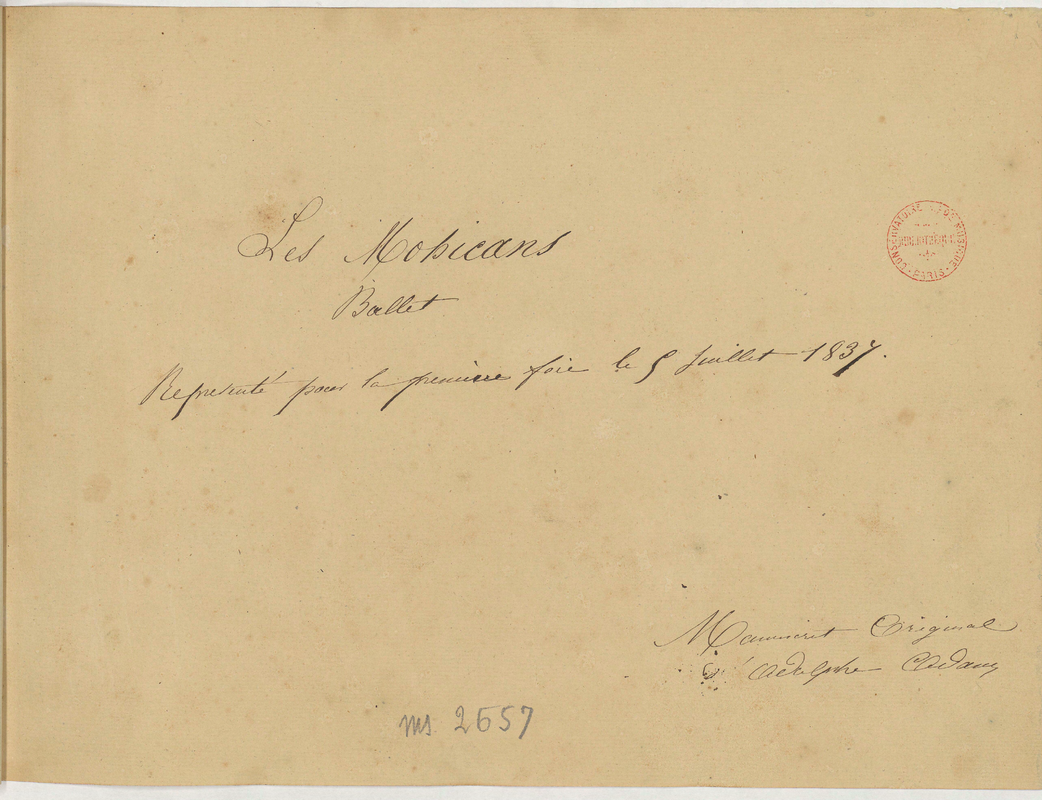 Les Mohicans
Ballet
Représenté pour la première fois le 5 Juillet 1837.
CONSERVATOIRE DE MUSIQUE
BIBLIOTHÈQUE
PARIS
Manuscrit Original
d'Adolphe Adam
ms 2657